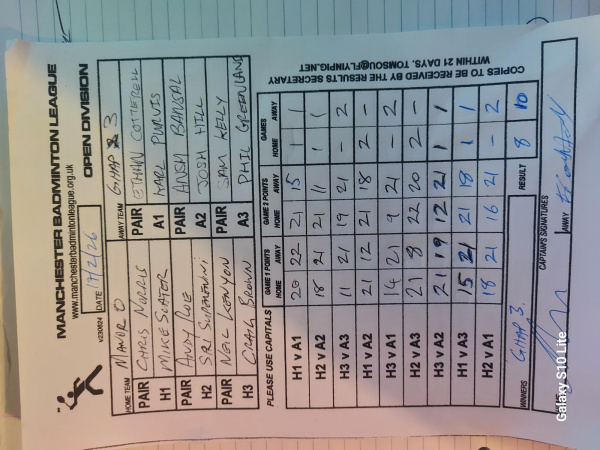 MANCHESTER BADMINTON LEAGUE
www.manchesterbadmintonleague.org.uk
OPEN DIVISION
v230824 DATE 17/2/26
HOME TEAM MANOR D AWAY TEAM GHAP 3
PAIR CHRIS NORRIS PAIR ETHAN COTTERELL
H1 MIKE SLATER A1 KARL PURVIS
PAIR ANDY PAIR ANSH BANSAL
H2 SRI A2 JOSH HILL
PAIR NEIL KENYON PAIR SAM KELLY
H3 CRAIG BROWN A3 PHIL GREENLAND
PLEASE USE CAPITALS
GAME 1 POINTS GAME 2 POINTS GAMES
HOME AWAY HOME AWAY HOME AWAY
H1 v A1 20 22 21 15 1 1
H2 v A2 18 21 21 11 1 1
H3 v A3 11 21 19 21 - 2
H1 v A2 21 12 21 18 2 -
H3 v A1 14 21 9 21 - 2
H2 v A3 21 8 22 20 2 -
H3 v A2 21 19 12 21 1 1
H1 v A3 15 21 21 18 1 1
H2 v A1 18 21 16 21 - 2
WINNERS GHAP 3. RESULT 8 10
CAPTAIN'S SIGNATURES
AWAY
COPIES TO BE RECEIVED BY THE RESULTS SECRETARY
WITHIN 21 DAYS. TOMSOU@FLYINPIG.NET
Galaxy S10 Lite